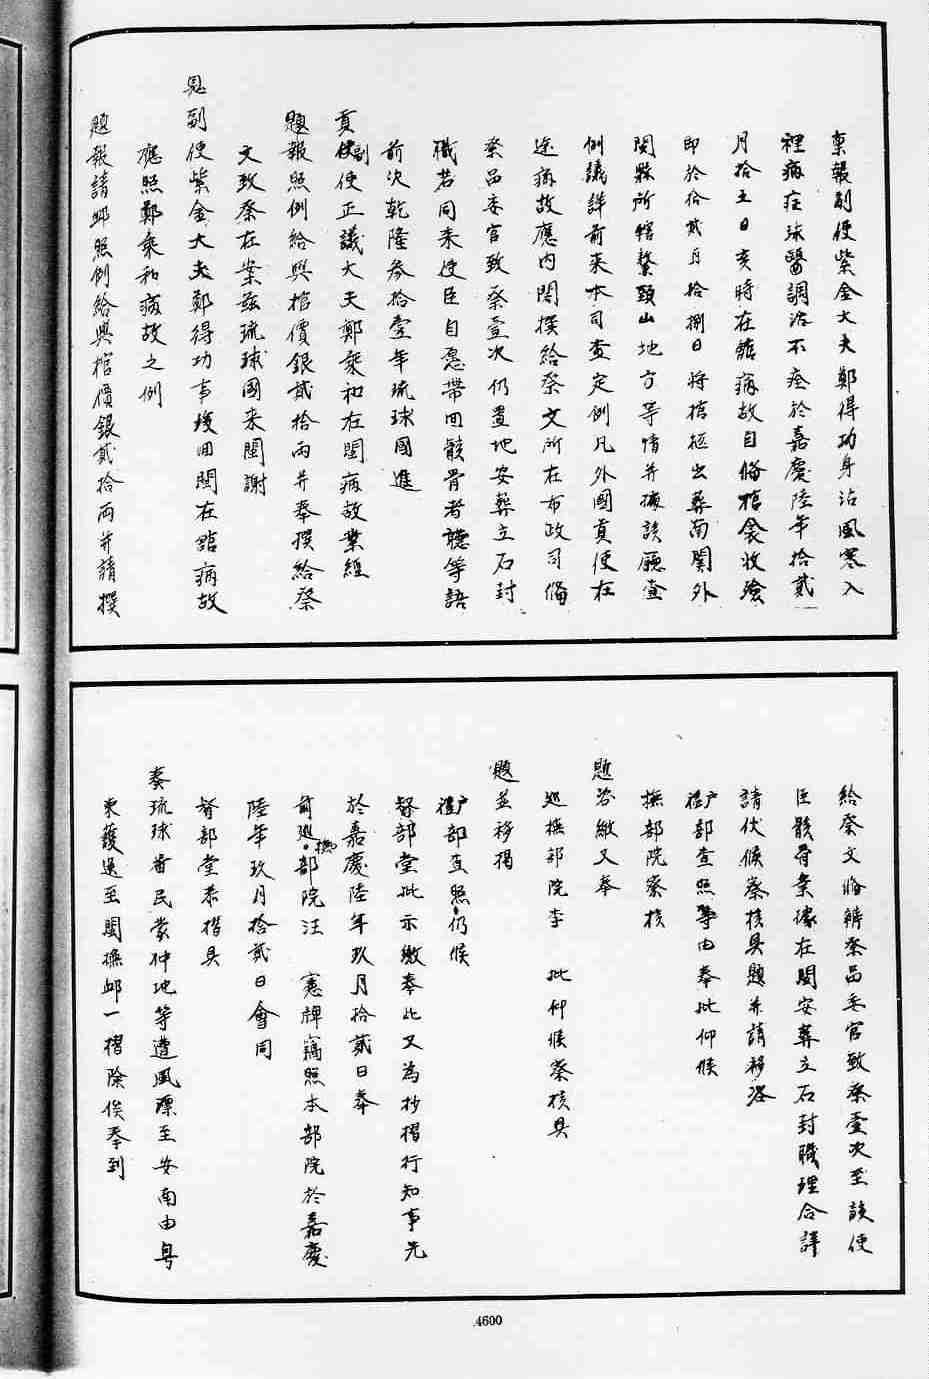 稟報副使紫金大夫鄭得功身沾風寒入
裡病症球醫調治不痊於嘉慶陸年拾貳
月拾五日亥時在館病故自偹棺衾收殮
即於拾貳月拾捌日將棺柩出葬南關外
閩縣所轄鰲頭山地方等情并據該廳查
例議詳前來本司查定例凡外國貢使在
途病故應內閣撰給祭文所在布政司偹
祭品委官致祭壹次仍置地安葬立石封
職若同来使臣自愿帶回骸骨者聽等語
前次乾隆叁拾壹年琉球國進
貢副使正議大夫鄭秉和在閩病故業經
題報照例給與棺價銀貳拾兩并奉撰給祭
文致祭在案茲琉球國来閩謝
恩副使紫金大夫鄭得功事竣回閩在舘病故
應照鄭秉和病故之例
題報請邺照例給與棺價銀貳拾兩并請撰
給祭文偹辦祭品委官致祭壹次至該使
臣骸骨業據在閩安葬立石封職理合詳
請伏候察核具題并請移咨
禮户部查照等由奉批仰候
撫部院察核
題咨繳又奉
巡撫部院李 批仰候察核具
題並移揭
禮户部查照仍候
督部堂批示繳奉此又為抄摺行知事先
於嘉慶陸年玖月拾貳日奉
前巡撫部院汪 憲牌竊照本部院於嘉慶
陸年玖月拾貳日會同
督部堂恭摺具
奏琉球畨民當仲地等遭風漂至安南由粤
東護送至閩撫邺一摺除俟奉到
4600